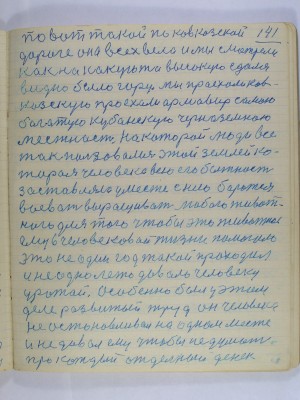 141
по вот такой по ковказской
дороге она всех вела и мы смотрели
как на какую то высокую сдаля
видно было гору мы проехали ков-
козскую проехали армавир самою
богатую кубанскую черноземною
местность на которой люди все
так ползовалися этой землей ко-
торая человека всю его бытност
заставляло уместе с нею боротся
воеват выращиват любого живот-
ного для того чтобы это животное
ему в человековай жизни помогало
это не один год такой проходил
и не одно лето довало человеку
урожай, особенно был у этим
деле развитый труд он человека
не остановливал на одном месте
и не довал ему чтобы не думат
про каждый отделный денек